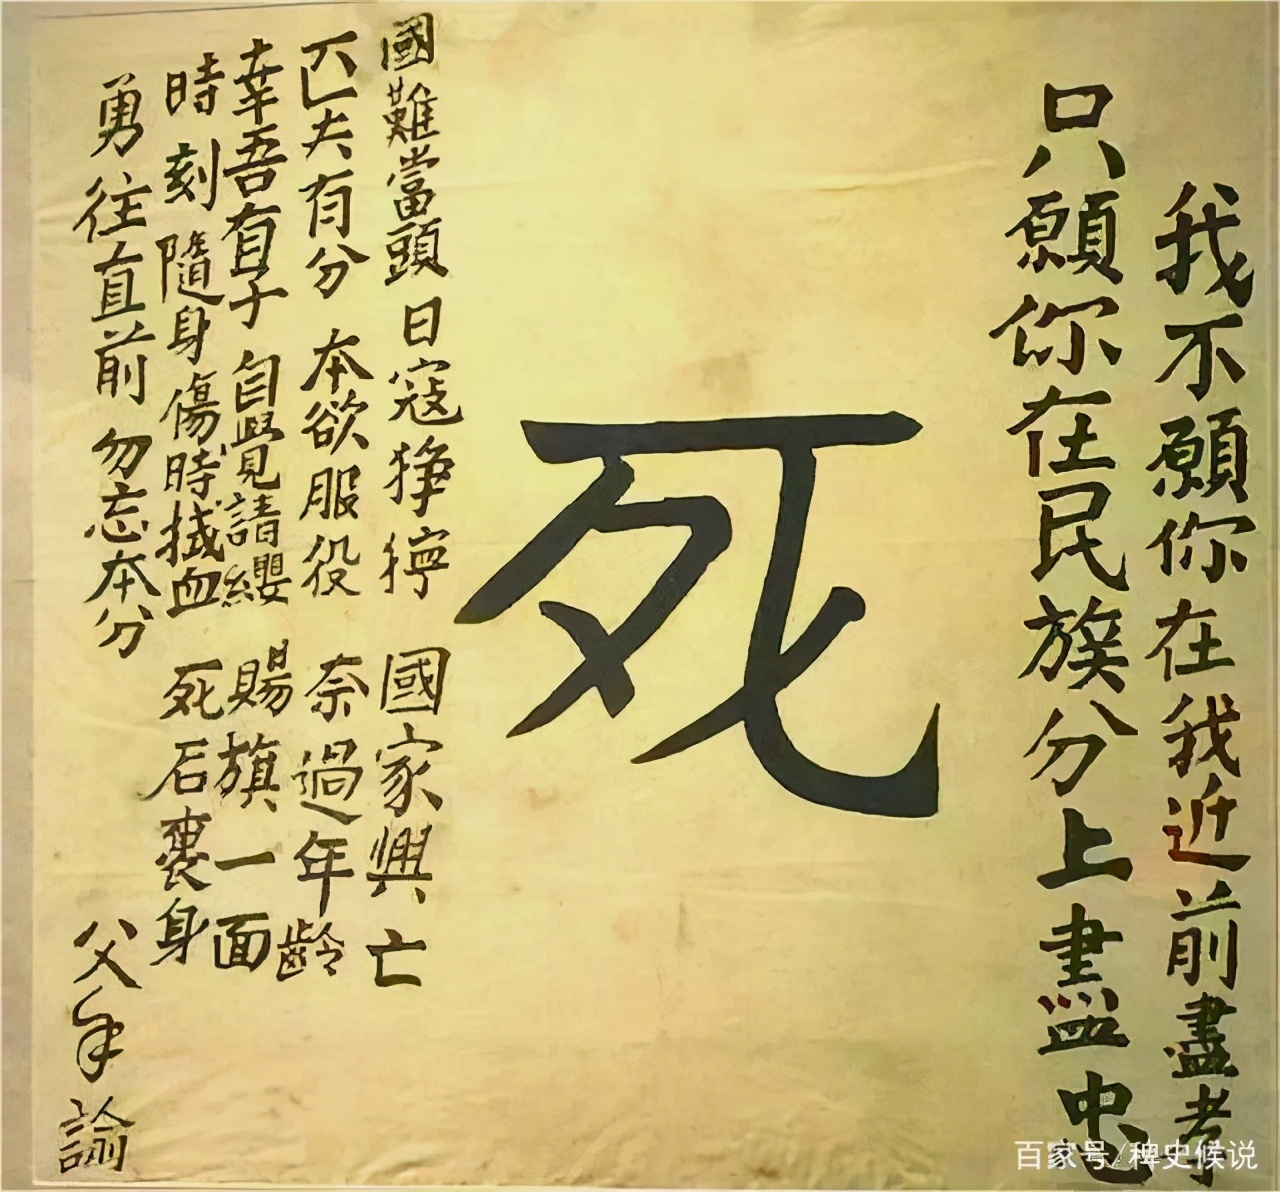 我不願你在我近前盡孝
只願你在民族分上盡忠
死
國難當頭 日寇狰獰 國家興亡
匹夫有分 本欲服役 奈過年齡
幸吾有子 自覺請纓 賜旗一面
時刻隨身 傷時拭血 死后裹身
勇往直前 勿忘本分
父手諭
百家号/稗史候说